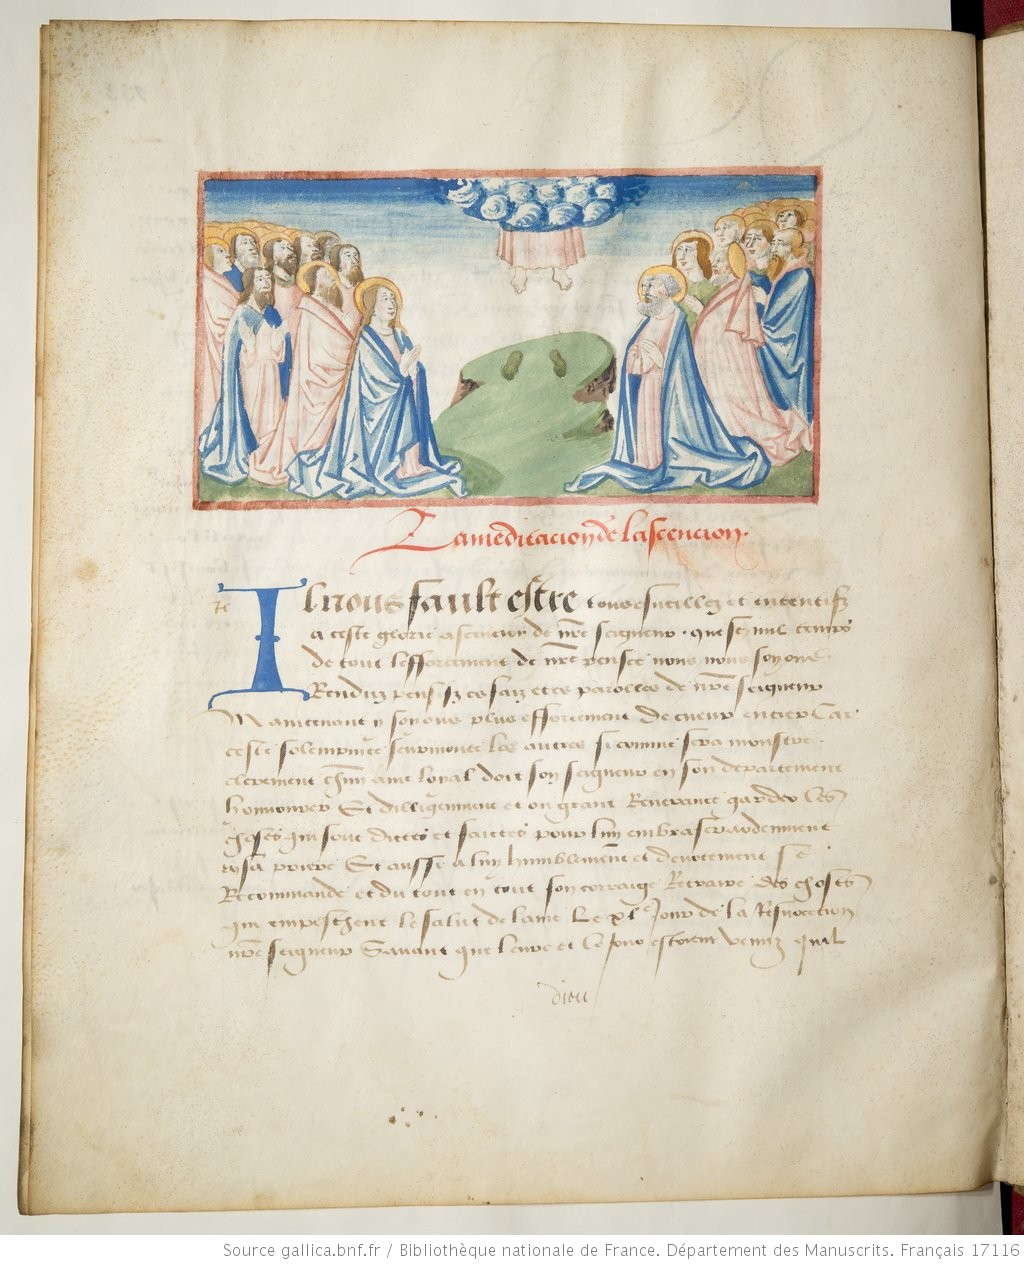 La meditacion de lascencion.
Il nous fault estre tous esueillez et ententifz
a ceste glorieuse ascencion de nr̄e seigneur. que se nul temps
de tout leffortement de nr̄e pensee nous nous soyons
Renduz pensifz es faiz et es parolles de nr̄e seigneur
Maintenant y soyons plus effortement de cueur entier Car
ceste solempnite seurmonte les autres si comme sera monstre.
clerement Chun̄ ame loyal doit son seigneur en son departement
honnourer Et dilligenment et en grant Reuerance garder les
choses qui sont dictes et faictes pour luy embraser ardenment
en sa priere Et aussi a luy humblement et deuotement se
Recommande et du tout en tout son corraige Retraire des choses
qui empeschent le salut de lame Le xl.e Jour de la Resurrection
nr̄e seigneur Sauant que leure et le jour estoient venuz quil
dieu
Source gallica.bnf.fr / Bibliothèque nationale de France. Département des Manuscrits. Français 17116